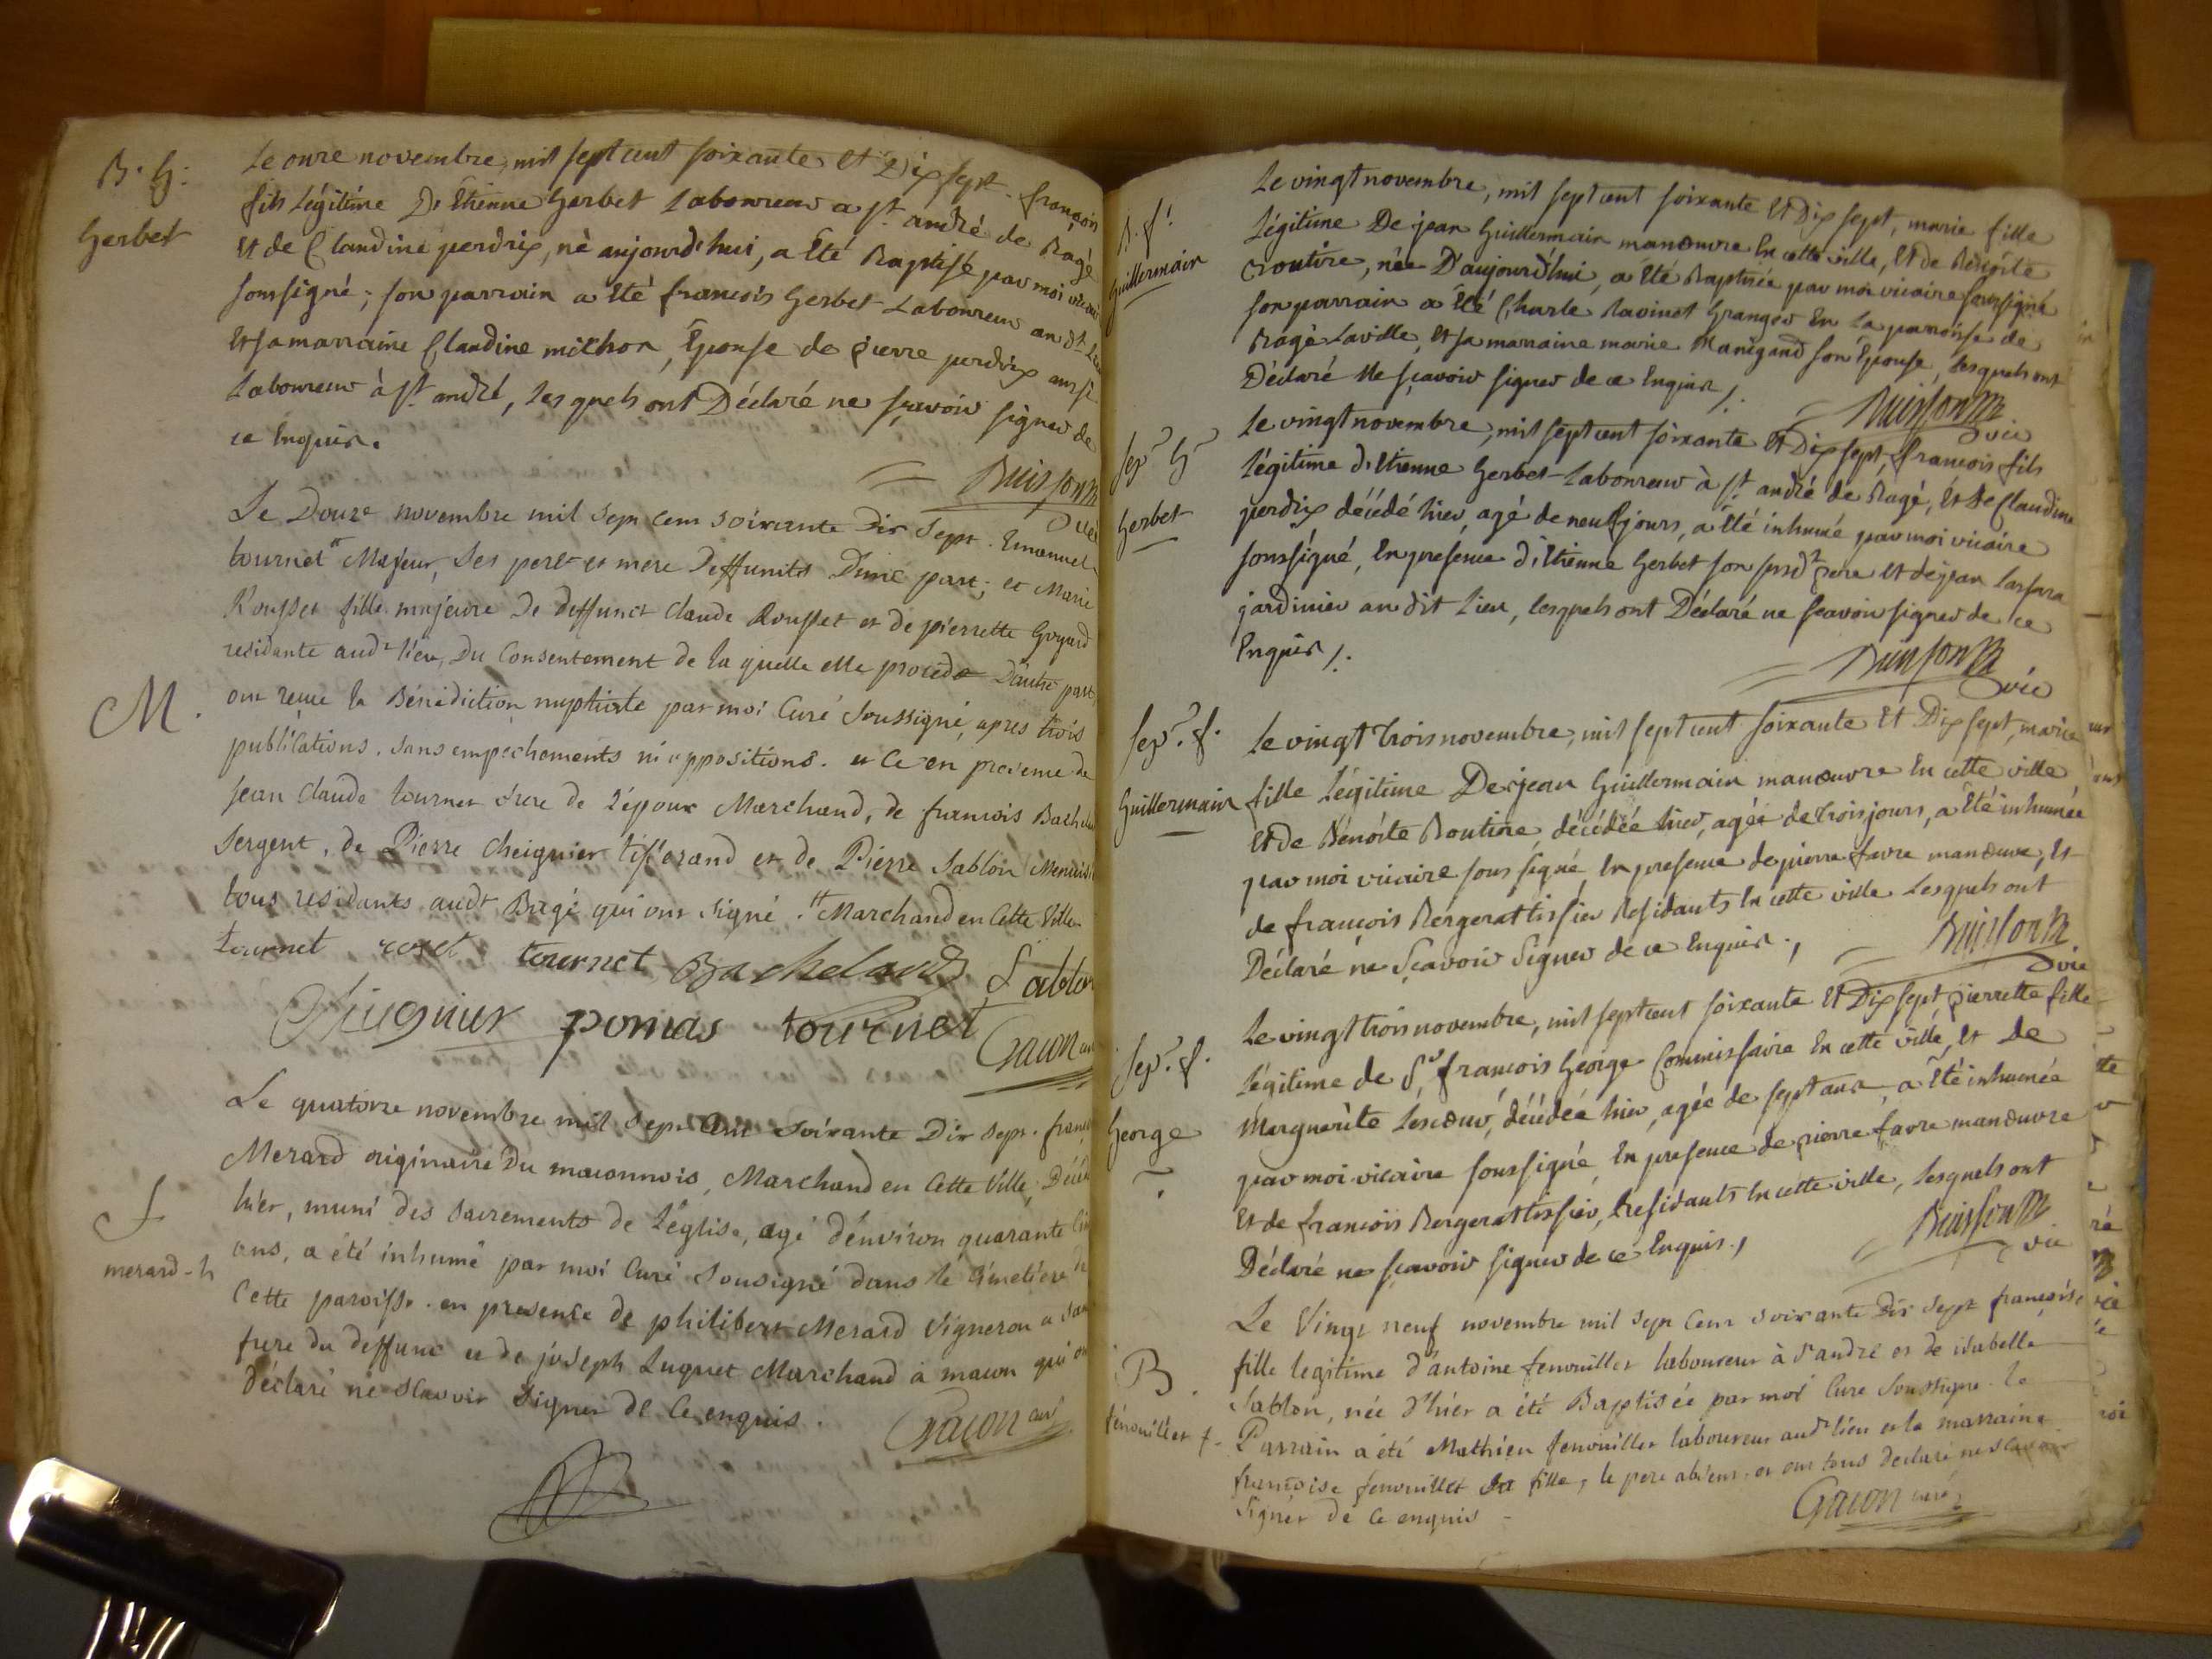 B. h:
Gerbet
Le onze novembre, mil sept cent soixante et Dix sept. françois
fils Légitime D'Etienne Gerbet Laboureur a st. andré de Bagé
et de Claudine perdrix, né aujourd'hui, a Eté Baptisé par moi vicaire
soussigné; son parrain a Eté francois Gerbet Laboureur au dt. Lieu
Et sa marraine Claudine michon, Epouse de pierre perdrix aussi
Laboureur à st. andré, Lesquels ont Déclaré ne sçavoir signer de
ce Enquis.
Buisson
vic
M.
Le Douze novembre mil sept cent soixante Dix sept. Emanuel
tournet # Majeur, Ses pere et mere Deffunts D'une part; et Marie
Rousset fille majeure De deffunct Claude Rousset et de pierrette Goyard
residante audt lieu, Du Consentement de la quelle elle procede D'autre part,
ont recue la Bénédiction nuptiale par moi Curé Soussigné, apres trois
publications. sans empechements ni oppositions. et Ce en presence de
Jean Claude tournet frere de l'époux Marchand, de francois Bachelard
Sergent, de Pierre Cheignier tisserand et de Pierre Sablon
tous residants audt Bagé qui ont signé. # Marchand en Cette Ville
tournet roset tournet Bachelard Sablon
Chugnier pomas tournet
Gacon curé
S
merard-h
Le quatorze novembre mil sept Cent soixante Dix sept. françois
Merard originaire Du maconnois, Marchand en Cette Ville, Décédé
hier, muni des Sacrements de L'église, agé d'environ quarante
ans, a été inhumé par moi Curé Sousigné dans le Cimetiere de
Cette paroisse. en presence de philibert Merard Vigneron a
frere du deffunt et de joseph Luquet Marchand a macon qui ont
déclaré ne scavoir signer de Ce enquis.
Gacon curé
B. f!
Guillermain
Le vingt novembre, mil sept cent soixante Et Dix sept, marie fille
Légitime De jean Guillermain manœuvre En cette ville, Et de Bénoite
Routire, née D'aujourd'hui, a Eté Baptisée par moi vicaire soussigné
son parrain a Eté Charle Ravinet Granger En La paroisse de
Bagé Laville, Et sa marraine marie Manigand son Epouse, Lesquels ont
Déclaré Ne sçavoir signer de ce Enquis /.
Buisson
vic
Sepr. h
Gerbet
Le vingt novembre, mil sept cent soixante Et Dix sept, francois fils
Légitime d'Etienne Gerbet Laboureur à st. andré de Bagé, Et De Claudine
perdrix décédé hier, agé de neuf jours, a Eté inhumé par moi vicaire
soussigné, En presence d'Etienne Gerbet son susdt. pere Et de jean
jardinier au dit Lieu, Lesquels ont Déclaré ne sçavoir signer de ce
Enquis /.
Buisson
vic
Sepr. f.
Guillermain
Le vingt trois novembre, mil sept cent soixante Et Dix sept, marie
fille Légitime De jean Guillermain manœuvre En cette ville
Et de Bénoite Routire, décédée hier, agée de trois jours, a Eté inhumée
par moi vicaire soussigné, En presence de pierre favre manœuvre, Et
de françois Bergerat tissier Residants En cette ville Lesquels ont
Déclaré ne Sçavoir Signer de ce Enquis.,
Buisson
vic
Sepr. f.
George
Le vingt trois novembre, mil sept cent soixante Et Dix sept, pierrette fille
Légitime de Sr francois George Commissaire En cette ville, Et de
Marguerite Lescœur, décédée hier, agée de sept ans, a Eté inhumée
par moi vicaire soussigné, En presence de pierre favre manœuvre
Et de francois Bergerat tissier, Residants En cette ville, Lesquels ont
Déclaré ne sçavoir signer de ce Enquis.,
Buisson
vic
B.
fénouillet f.
Le Vingt neuf novembre mil sept Cent soixante Dix Sept françoise
fille legitime d'antoine fenouillet laboureur à st andré et de isabelle
Sablon, née d'hier a été Baptisée par moi Curé Soussigné. le
Parrain a été Mathieu fenouillet laboureur audt lieu et la marraine
françoise fenouillet Sa fille, le pere absent. et ont tous declaré ne scavoir
signer de Ce enquis
Gacon curé